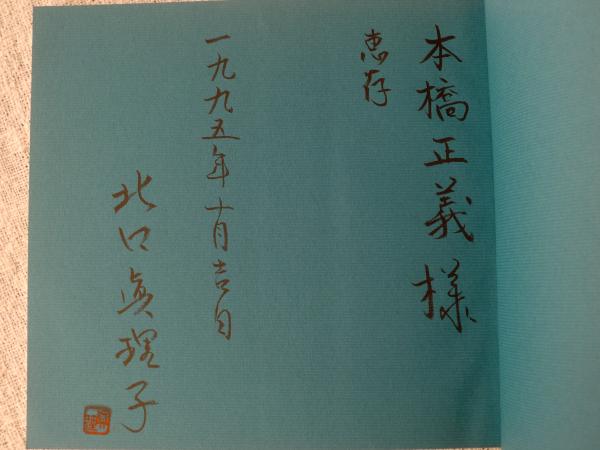 本橋正義様
恵存
一九九五年十月吉日
北口眞理子